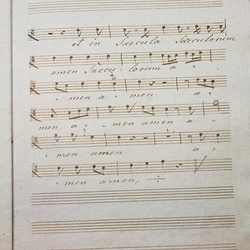 et in Saecula Saeculorum
amen Saecu_lorum a_
_men a_men a_
men a_men amen a_
_men amen a_
_men amen,